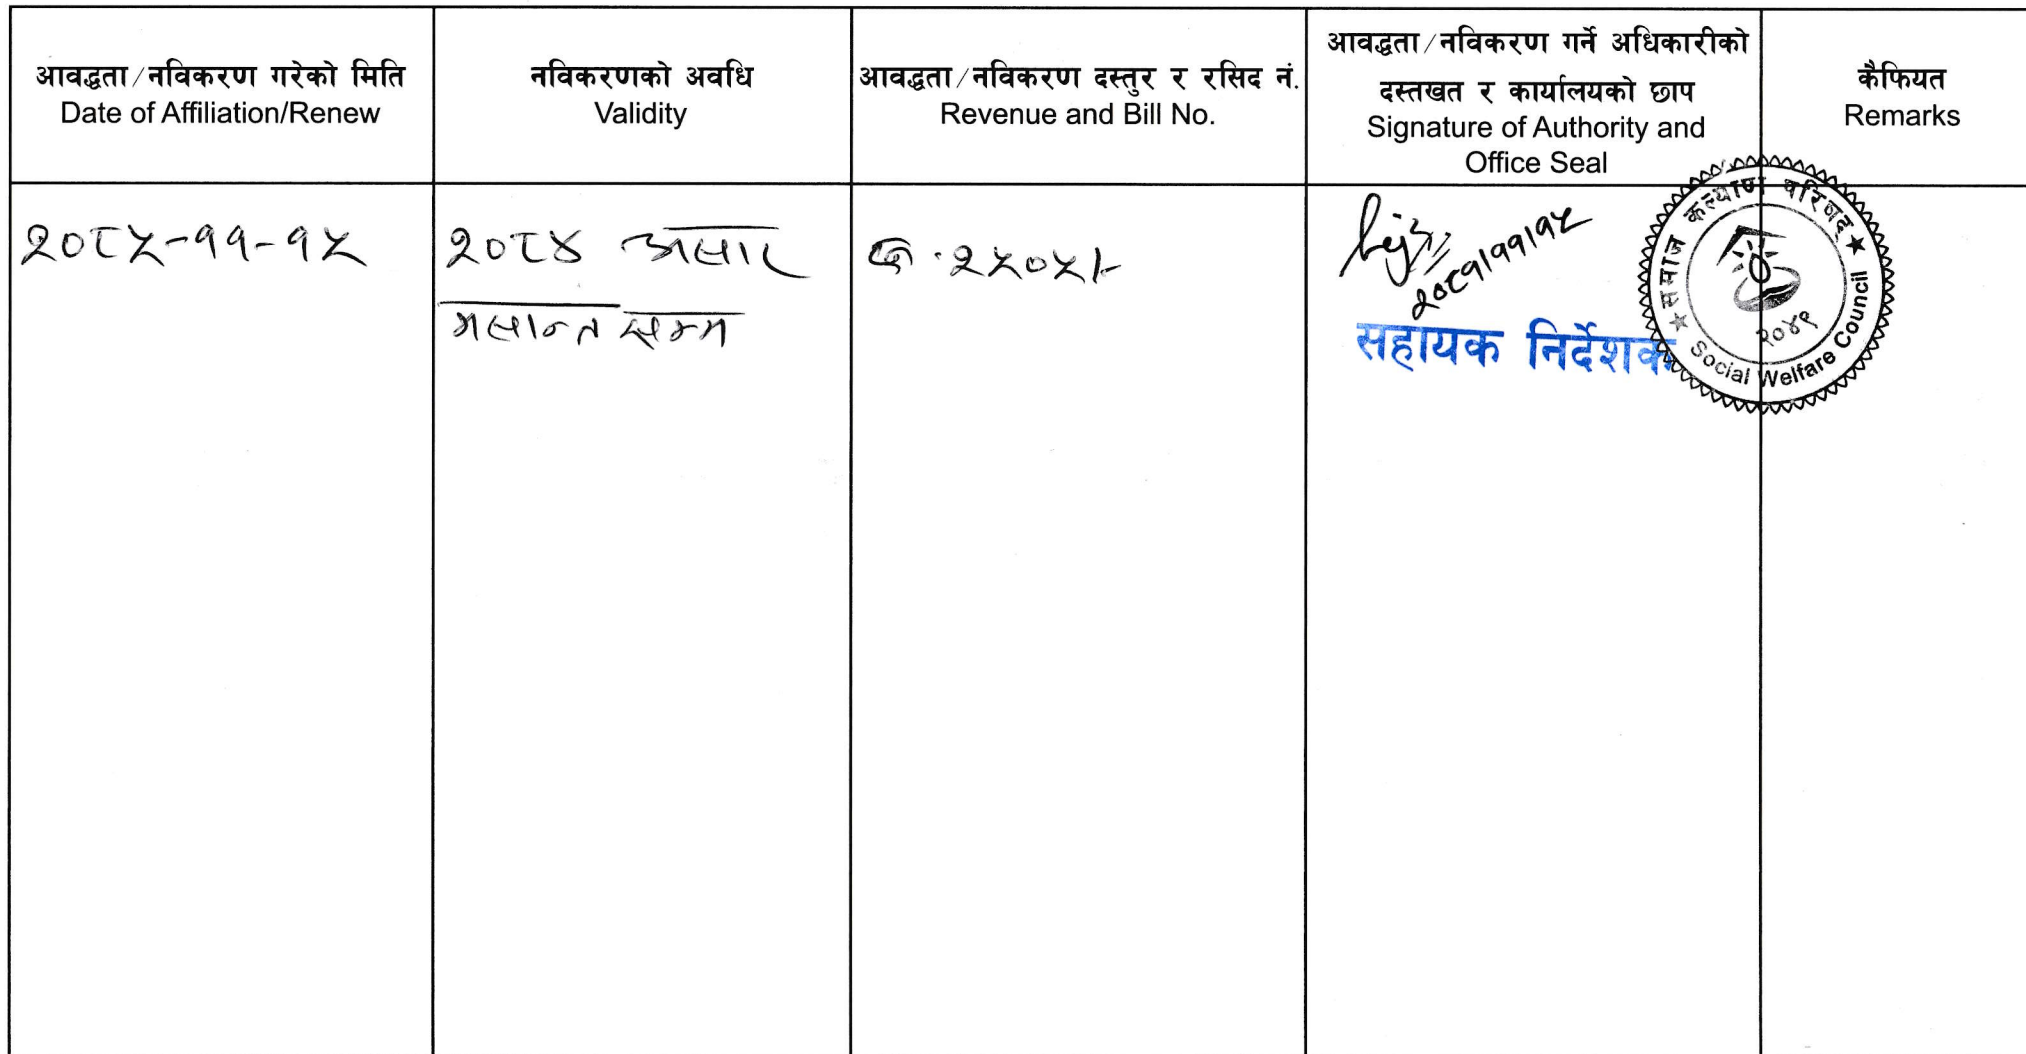 आवद्धता/नविकरण गरेको मिति
Date of Affiliation/Renew
नविकरणको अवधि
Validity
आवद्धता/नविकरण दस्तुर र रसिद नं.
Revenue and Bill No.
आवद्धता/नविकरण गर्ने अधिकारीको
दस्तखत र कार्यालयको छाप
Signature of Authority and
Office Seal
कैफियत
Remarks
२०८५-११-१५
२०८४ असार
मसान्त सम्म
२५०५/-
२०८१/११/१५
सहायक निर्देशक
समाज कल्याण परिषद्
२०४९
Social Welfare Council